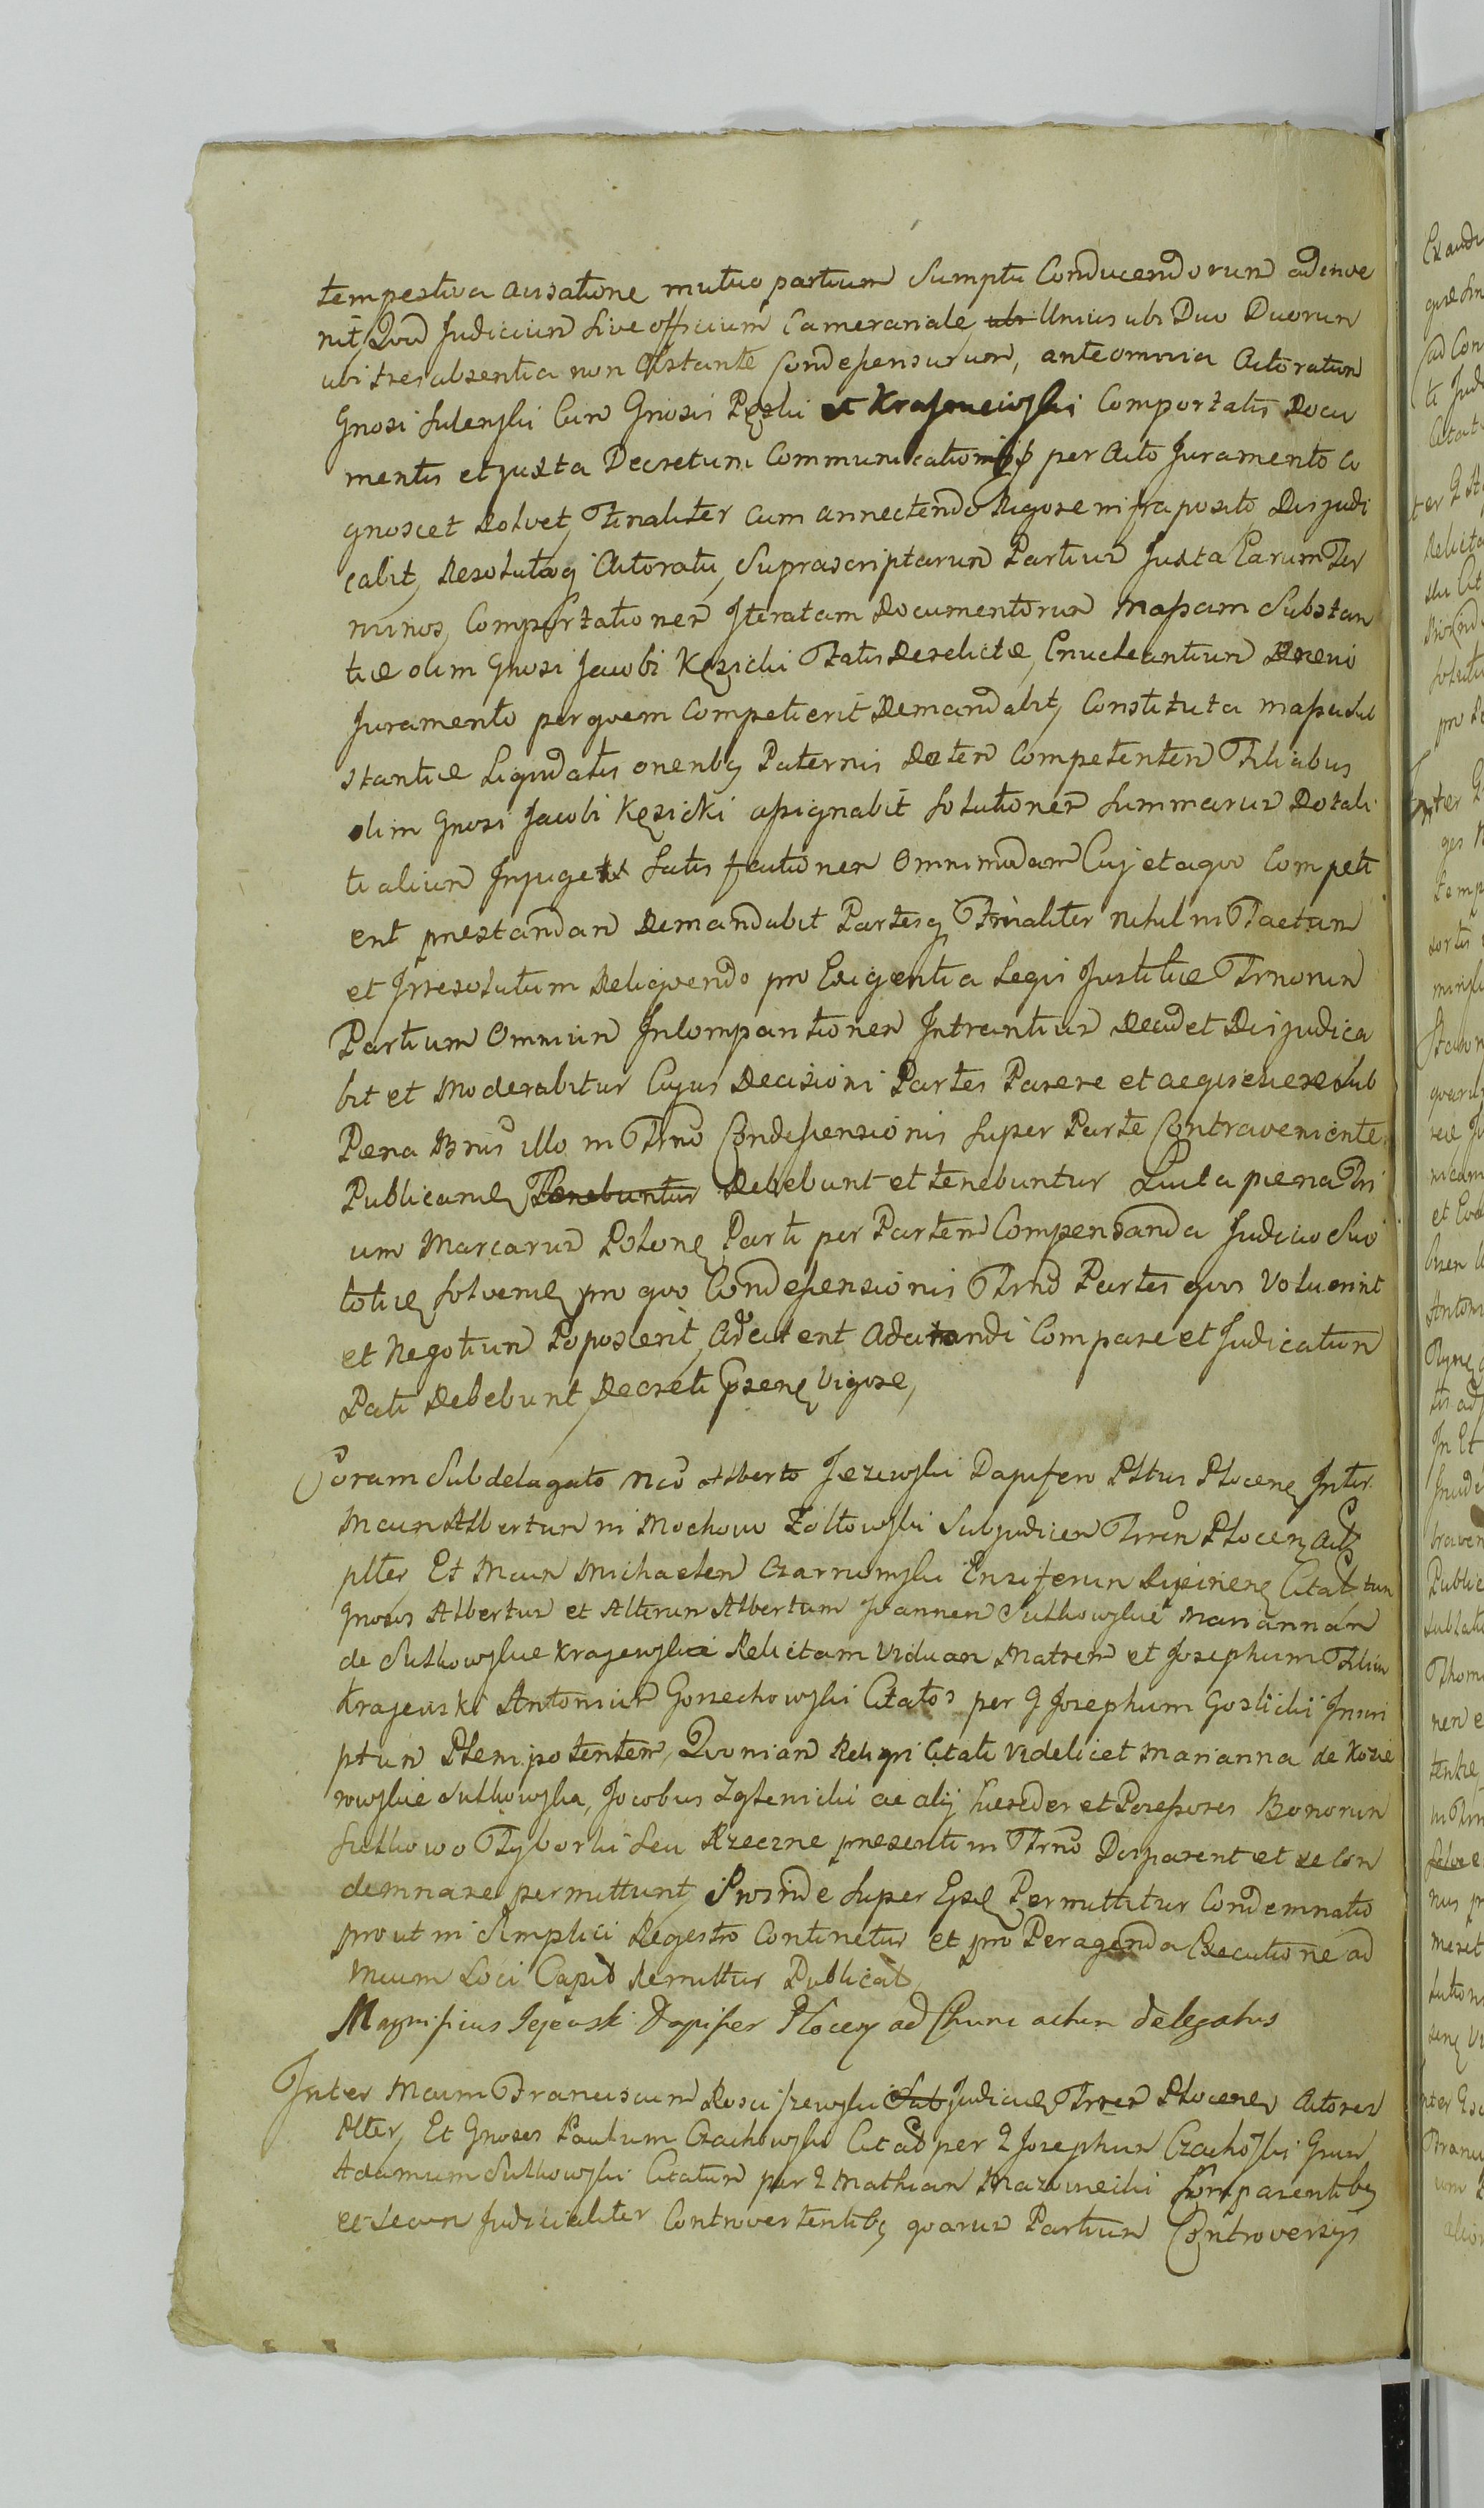 tempestiva avisatione mutuo partium Sumptu Conducendorum adinve
nit, Qvod Judicium Sive officium Camerariale, ubi Unius ubi Duo Duorum
ubi tres absentia non Obstante Condescensurum, anteomnia Actoratum
Gnosi Sulenski Cum Gnosis Peski et Krajeweiski Comportatis Docu
mentis et juxta Decretum Communicationis per Acto Juramento Co
gnoscet Solvet, Finaliter cum annectendo Rigore infraposito Disjudi
cabit, Resolutoq Actoratu, Suprascriptarum Partium Juxta Earum Ter
minos, Comportationem Iteratam Documentorum Massam Substan
tiæ olim Gnosi Jacobi Kęsicki Fatis Derelictæ, Enucleantium
Juramento per qvem Competierit Demandabit, Constituta massa Sub
stantiæ Liqvidatis oneribq Paternis Dotem Competentem Filiabus
olim Gnosi Jacobi Kęsicki assignabit Solutionem Summarum Dotali
tialium Injuget Satisfactionem Omnimodam Cuj et aqvo Competi
erit præstandam Demandabit Partesq Finaliter nihil in Factum
et Irresolutum Reliqvendo pro Exigentia Legis Justitiæ Trnorum
Partium Omnium In Comparitionem Intrantium Decid et Disjudica
bit et Moderabitur Cujus Decisioni Partes Parere et acqviescere Sub
Pæna Bnis illo in Trno Condescensionis Super Parte Contraveniente
Publicand Tenebuntur Debebunt et tenebuntur Luita pæna Tri
um Marcarum Polon Parti per Partem Compensanda Judicio Suo
toties Solvend pro qvo Condescensionis Trno Partes qvos Voluerint
et Negotium Poposcerit, Adcitent Adcitandi Comparere et Judicatum
Pati Debebunt, Decreti Prsen Vigore,
Coram Subdelagato Mco Alberto Jezewski Dapifero Pltus Plocen Inter
Mcum Albertum in Mochowo Zołtowski Subjudicem Trren Plocen Act
plter Et Mcum Michaelem Czarnomski Ensiferum Lipinen Citat, tum
Gnosos Albertum et Alterum Albertum Joannem Sutkowskie Mariannam
de Sutkowskie Krajewska Relictam Viduam Matrem et Josephum Filium
Krajewski Antonium Gorzechowski Citatos per G Josephum Goslicki Inscri
ptum Plenipotentem, Qvoniam Reliqvi Citati Videlicet Marianna de Kozie
rowskie Sutkowska, Jacobus Zglenicki ac alij hæredes et Possessores Bonorum
Sutkowo Tyborki Seu Rzeczne præsenti in Trno Disparent et se Con
demnare permittunt, Proinde Super Eysd Permittitur Condemnatio
prout in Simplici Regestro Continetur et pro Peragenda Executione ad
Mcum Loci Capit Remittitur Publicat,
Magnificus Jezewski Dapifer Plocen ad hunc actum delegatus
Inter Mcum Franciscum Rosciszewski Sub Judicem Trren Plocen Actorem
Plter, Et Gnosos Paulum Czachowski Citat per G Josephum Czachowski Gnm
Adamum Sutkowski Citatum per G Mathiam Mazowiecki Comparentibq
et Secum Judicialiter Controvertentibq qvarum Partium Controversys